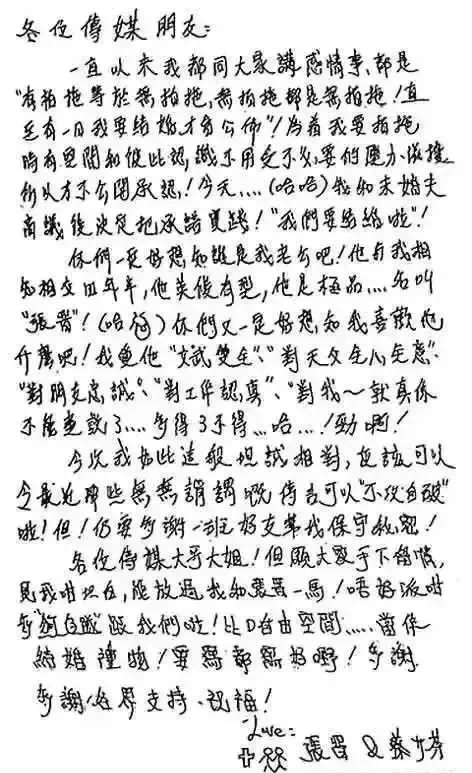 各位傳媒朋友:
一直以來我都同大家講感情事、都是
"有拍拖等於無拍拖,無拍拖都是無拍拖!直
至有一日我要結婚,才會公佈"!為着我要拍拖
時有空間和彼此認識不用受不必要的壓力
所以才不公開承認!今天....(哈哈)我和未婚夫
商議後決定把承諾實踐!"我們要結婚啦"!
你們一定好想知誰是我老公吧!他與我相
知相交四年半,他英俊有型,他是極品....名叫
"張晋"!(哈哈)你們又一定好想知我喜歡他
什麼吧!我愛他"文武雙全"、"對天父全心全意"、
"對朋友忠誠"、"對工作認真"、"對我~就真係
不能盡說了....多得3不得...哈...!勁啊!
今次我如此這般坦誠相對,應該可以
令最近那些無無謂謂嘅傳言可以"不攻自破"
啦!但!仍要多謝一班好友幫我保守秘密!
各位傳媒大哥大姐!但願大家手下留情,
見我咁坦白,能放過我和張晋一馬!唔好派咁
多"狗仔隊"跟我們啦!比D自由空間.....當作
結婚禮物!要寫都寫好嘢!多謝
多謝各界支持、祝福!
Love:
張晋 & 蔡少芬